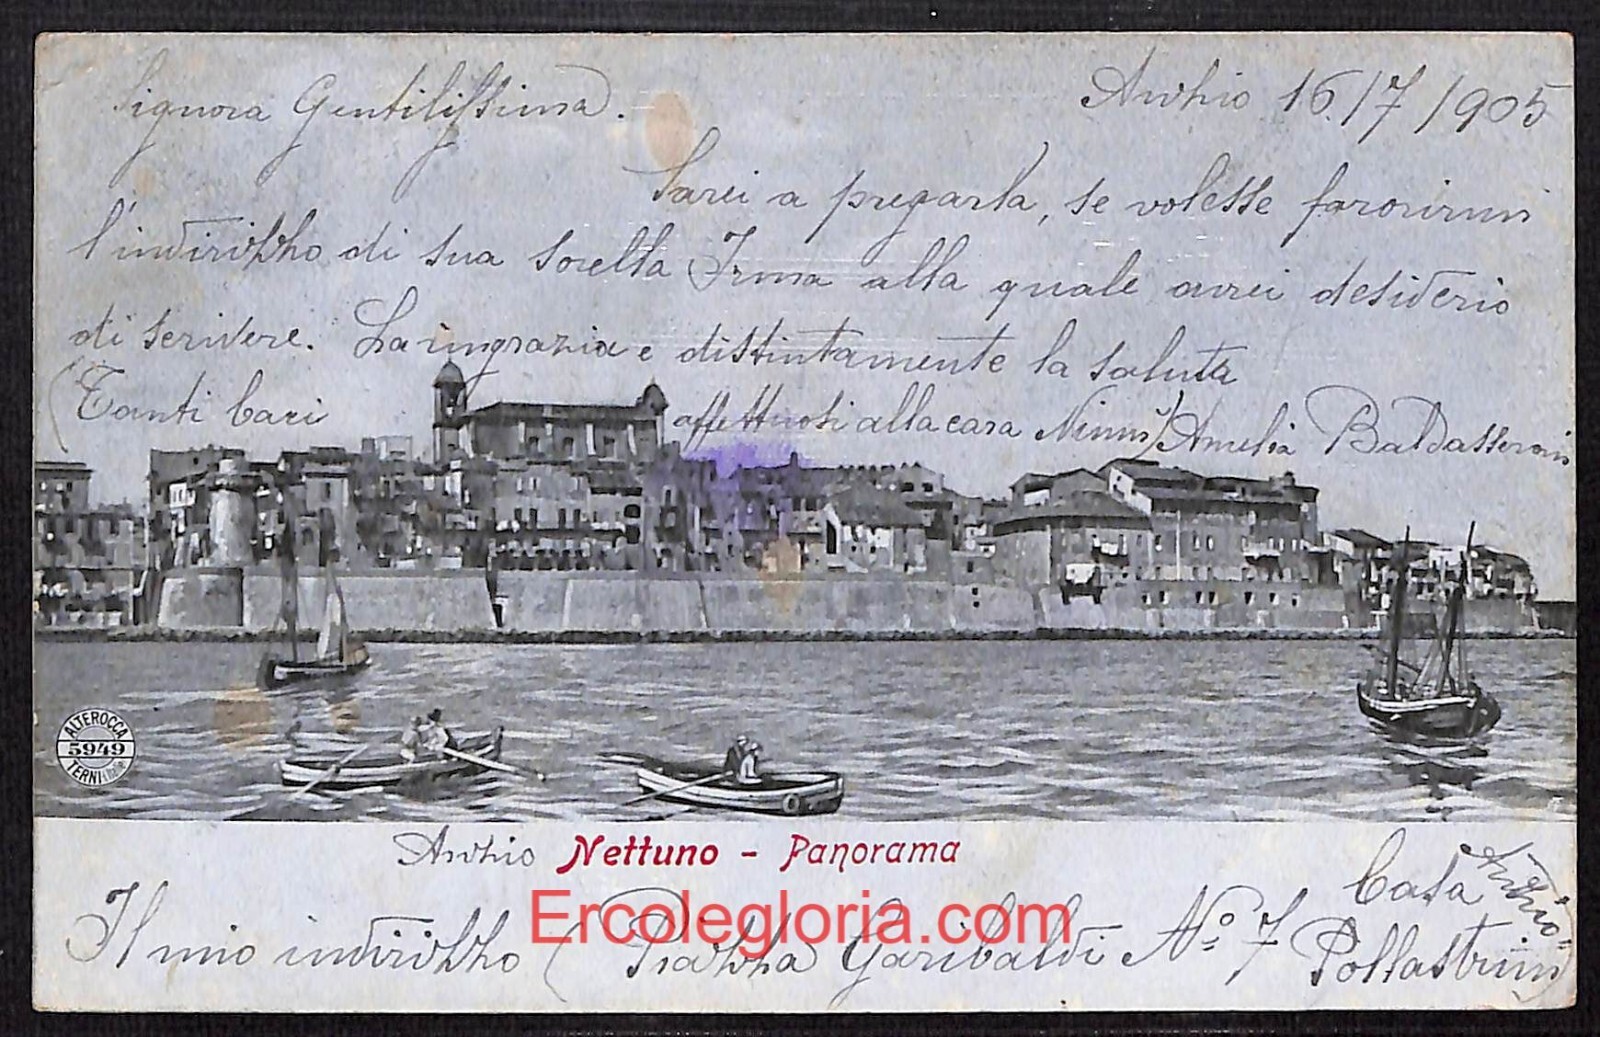 Anzio 16/7/905
Signora Gentilissima.
Sarei a pregarla, se volesse favorirmi
l'indirizzo di sua sorella Irma alla quale avrei desiderio
di scrivere. La ringrazia e distintamente la saluta
(Tanti baci affettuosi alla cara Ninni) Amelia Baldasseroni
ALTEROCCA
5949
TERNI
Anzio Nettuno - Panorama
Il mio indirizzo (Piazza Garibaldi No. 7 Casa
Pollastrini
Anzio)
Ercolegloria.com